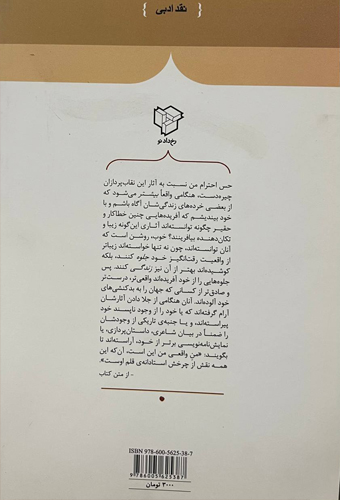 { نقد ادبی }
رخ‌داد نو
حس احترام من نسبت به آثار این نقاب‌پردازان
چیره‌دست، هنگامی واقعاً بیشتر می‌شود که
از بعضی خرده‌های زندگی‌شان آگاه باشم و با
خود بیندیشم که آفریده‌هایی چنین خطاکار و
حقیر چگونه توانسته‌اند آثاری این‌گونه زیبا و
تکان‌دهنده بیافرینند؟ خوب، روشن است که
آنان توانسته‌اند، چون نه تنها خواسته‌اند زیباتر
از واقعیت رقت‌انگیز خود جلوه کنند، بلکه
کوشیده‌اند بهتر از آن نیز زندگی کنند. پس
جلوه‌هایی را از خود آفریده‌اند واقعی‌تر، درست‌تر
و صادق‌تر از کسانی که جهان را به بدکنشی‌های
خود آلوده‌اند. آنان هنگامی از جلا دادن آثارشان
آرام گرفته‌اند که یا خود را از وجود ناپسند خود
پیراسته‌اند، و یا جنبه‌ی تاریکی از وجودشان
را ضمناً در بیان شاعری، داستان‌پردازی، یا
نمایش‌نامه‌نویسی برتر از خود، آراسته‌اند تا
بگویند: «منِ واقعی من این است، آن‌که این
همه نقش از چرخش استادانه‌ی قلم اوست».
- از متن کتاب
ISBN 978-600-5625-38-7
9786005625387
۳۰۰۰ تومان